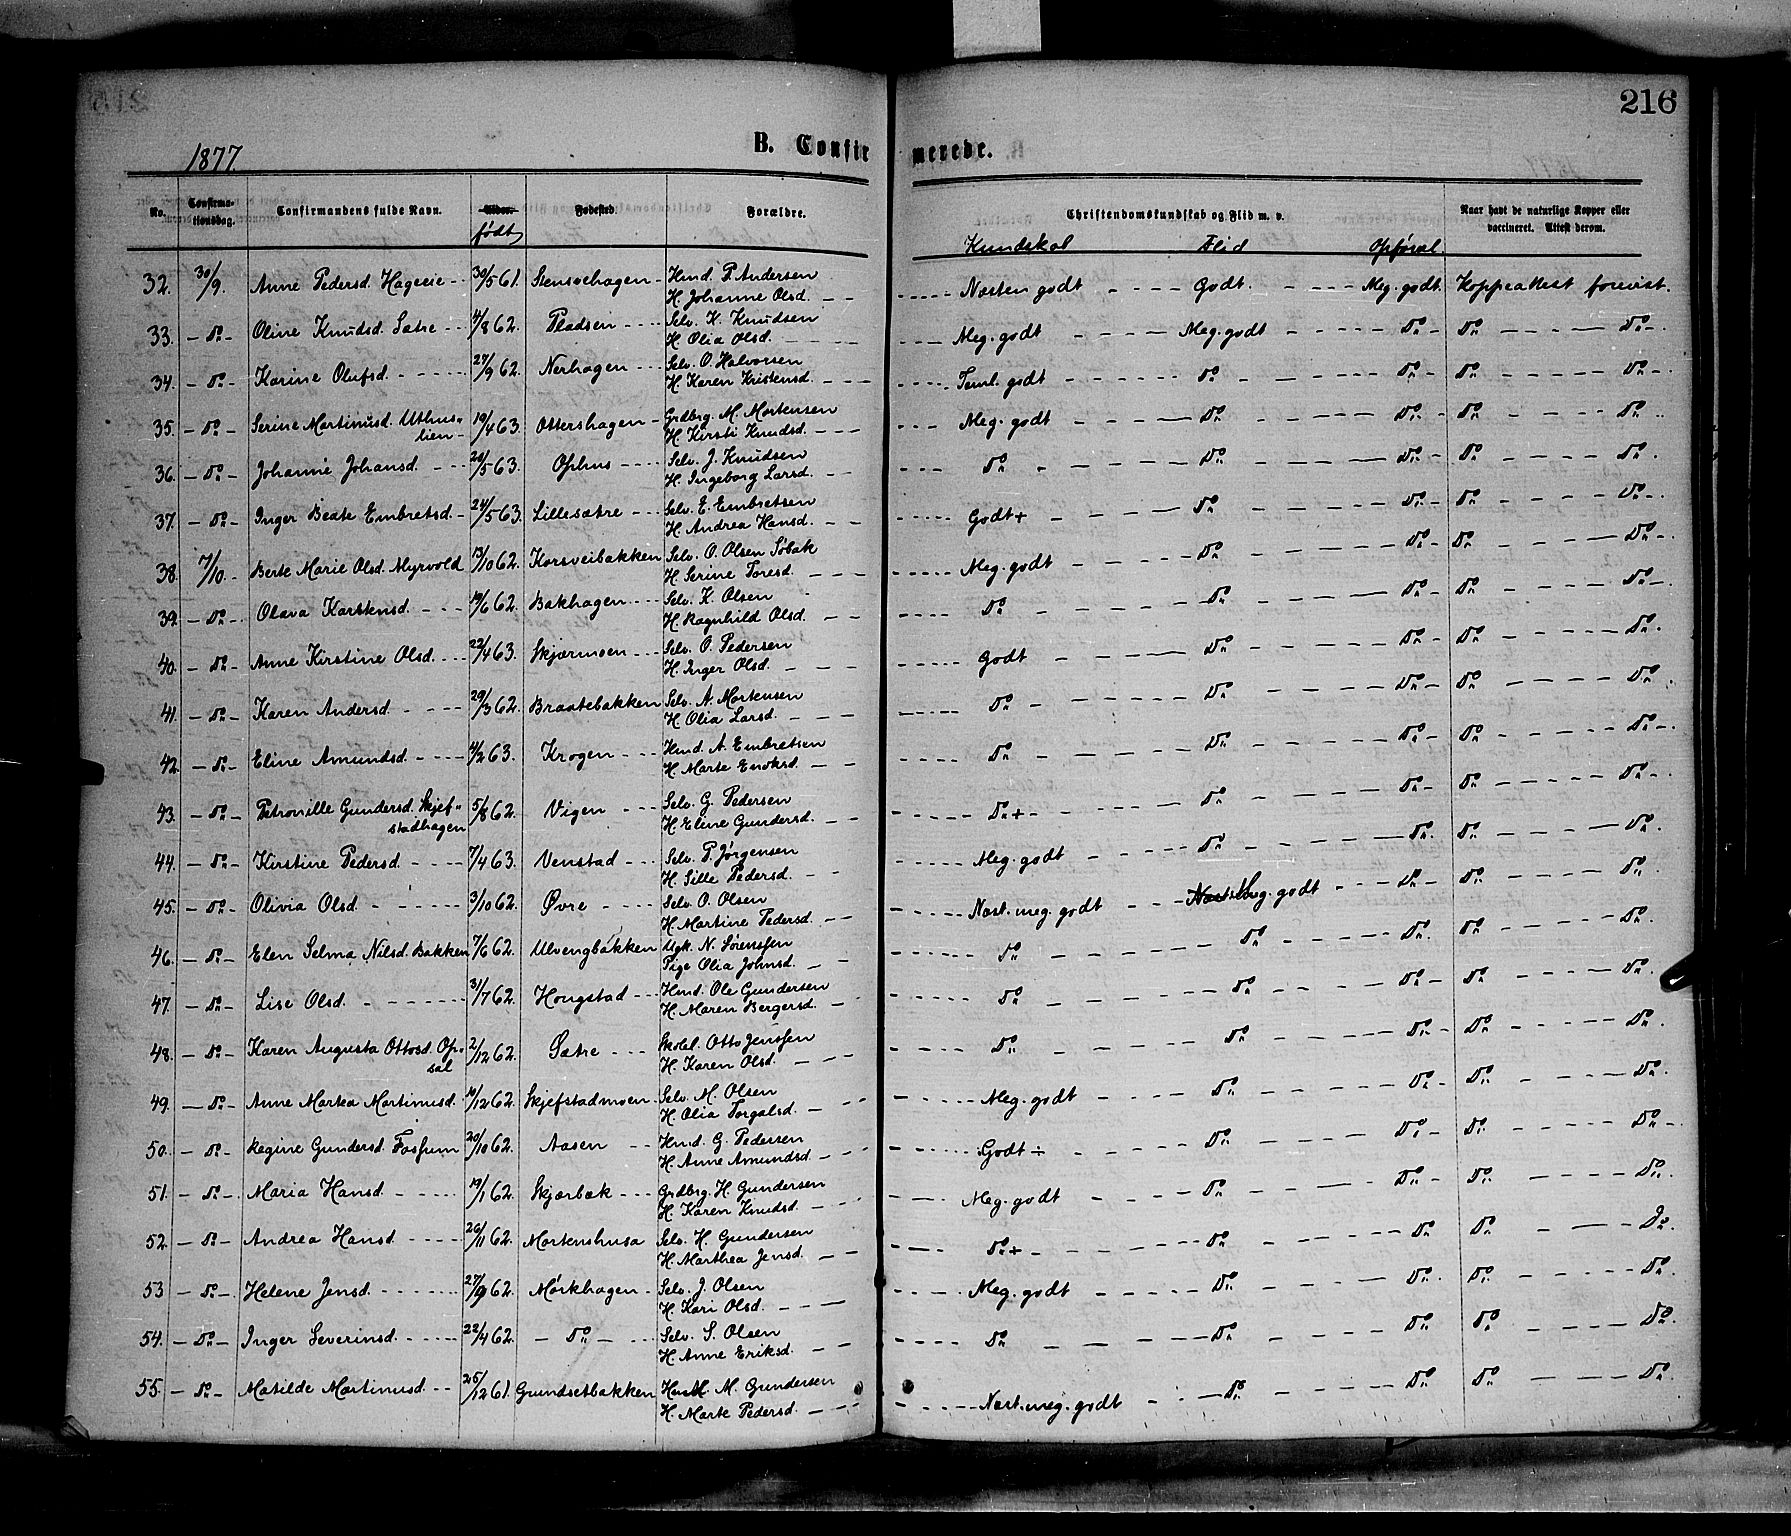 216
1877.
B. Confirmerede.
No. Confirma-tionsdag. Confirmandens fulde Navn. Alder. født Fødested. Forældre. Christendomskundskab og Flid m. v. Naar havt de naturlige Kopper eller vaccineret. Attest derom.
Kundskab Flid Opførsel.
32. 30/9. Anne Pedersd. Hageeie 30/5 61. Stensvehagen Hmd. P. Andersen
H. Johanne Olsd. Næsten godt Godt. Meg. godt. Koppeattest forevist.
33. Do Oline Knudsd. Sætre 4/8 62. Pladsen Selv. K. Knudsen
H. Olia Olsd. Meg. godt Meg. godt Do Do Do
34. Do Karine Olufsd. 27/9 62. Nerhagen Selv. O. Halvorsen
H. Karen Kristensd. Teml. godt Do Do Do Do
35. Do Serine Martinusd. Uthus-
lien 19/4 63. Ottershagen Grdbrg. M. Mortensen
H. Kirsti Knudsd. Meg. godt Do Do Do Do
36. Do Johanne Johansd. 28/5 63. Ophus Selv. J. Knudsen
H. Ingeborg Larsd. Do Do Do Do Do
37. Do Inger Beate Embretsd. 24/5 63. Lillesætre Selv. E. Embretsen
H. Andrea Hansd. Godt + Do Do Do Do
38. 7/10. Berte Marie Olsd. Myrvold 13/10 62. Korsveibakken Selv. O. Olsen Søbak
H. Serine Toresd. Meg. godt Do Do Do Do
39. Do Olava Karstensd. 19/6 62. Bakhagen Selv. K. Olsen
H. Ragnhild Olsd. Do Do Do Do Do
40. Do Anne Kirstine Olsd. 22/4 63. Skjærmoen Selv. O. Pedersen
H. Inger Olsd. Godt Do Do Do Do
41. Do Karen Andersd. 29/3 62. Braatebakken Selv. A. Mortensen
H. Olia Larsd. Do Do Do Do Do
42. Do Eline Amundsd. 4/2 63. Krogen Hmd. A. Embretsen
H. Marte Enoksd. Do Do Do Do Do
43. Do Petronille Gundersd. Skjef-
stadhagen 5/8 62. Vigen Selv. G. Pedersen
H. Eline Gundersd. Do + Do Do Do Do
44. Do Kirstine Pedersd. 7/4 63. Venstad Selv. P. Jørgensen
H. Sille Pedersd. Meg. godt Do Do Do Do
45. Do Olivia Olsd. 3/10 62. Øvre Selv. O. Olsen
H. Martine Pedersd. Næst. meg. godt Næst. Meg. godt Do Do Do
46. Do Elen Selma Nilsd. Bakken 7/6 62. Ulvengbakken Ugk. N. Sørenssen
Pige Olia Johnsd. Do Do Do Do Do
47. Do Lise Olsd. 31/7 62. Hongstad Hmd. Ole Gundersen
H. Maren Bergersd. Do Do Do Do Do
48. Do Karen Augusta Ottosd. Op-
sal 2/12 62. Sætre Skolel. Otto Jenssen
H. Karen Olsd. Do Do Do Do Do
49. Do Anne Martea Martinusd. 10/12 62. Skjefstadmoen Selv. M. Olsen
H. Olia Torgalsd. Meg. godt Do Do Do Do
50. Do Regine Gundersd. Fossum 20/10 62. Aasen Hmd. G. Pedersen
H. Anne Amundsd. Godt ÷ Do Do Do Do
51. Do Maria Hansd. 19/1 62. Skjærbæk Grdbrg. H. Gundersen
H. Karen Knudsd. Meg. godt Do Do Do Do
52. Do Andrea Hansd. 26/11 62. Mortenshusa Selv. H. Gundersen
H. Marthea Jensd. Do + Do Do Do Do
53 Do Helene Jensd. 27/9 62. Mørkhagen Selv. J. Olsen
H. Kari Olsd. Meg. godt Do Do Do Do
54. Do Inger Severinsd. 22/4 62. Do Selv. S. Olsen
H. Anne Eriksd. Do Do Do Do Do
55. Do Matilde Martinusd. 25/12 61. Grundsetbakken M. Gundersen
H. Marte Pedersd. Næst. meg. godt Do Do Do Do